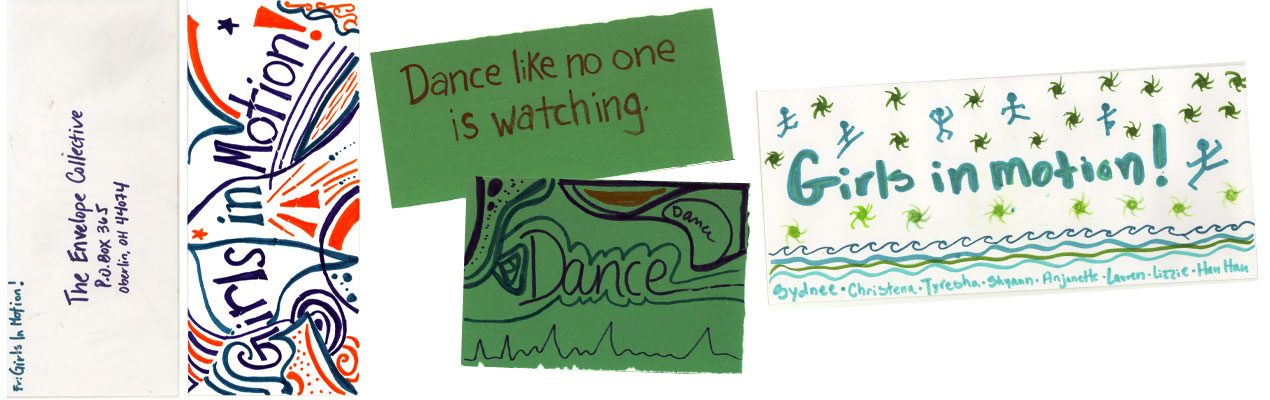 Fr: Girls In Motion!
The Envelope Collective
P.O. Box 365
Oberlin, OH 44074
Girls in Motion!
Dance like no one
is watching.
Dance
Dance
Girls in motion!
Sydnee • Christena • Tyresha • Shyann • Anjanette • Lauren • Lizzie • Han Han